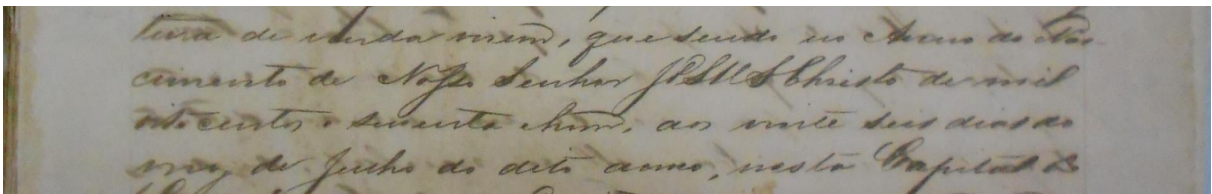 tura de venda virem, que sendo no Anno do Nas-
cimento de Nosso Senhor JESUS Christo de mil
oito centos e secenta e hum, aos vinte seis dias do
mez de Julho do dito anno, nesta Capital